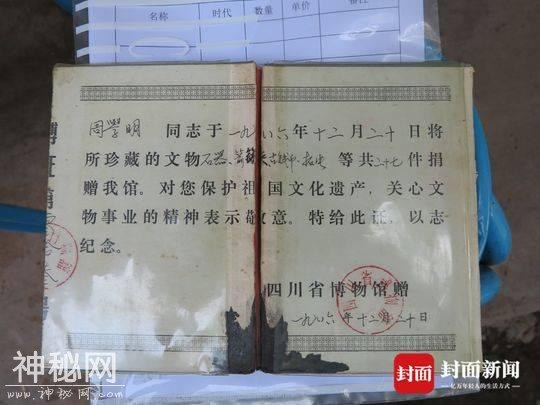 名称 时代 数量 单价 备注
周学明 同志于一九八六年十二月二十日将
所珍藏的文物石器、箭镞 等共二十七件捐
赠我馆。对您保护祖国文化遗产，关心文
物事业的精神表示敬意。特给此证，以志
纪念。
四川省博物馆赠
一九八六年十二月二十日
神秘网
www.神秘网.com
封面 封面新闻
亿万年轻人的生活方式